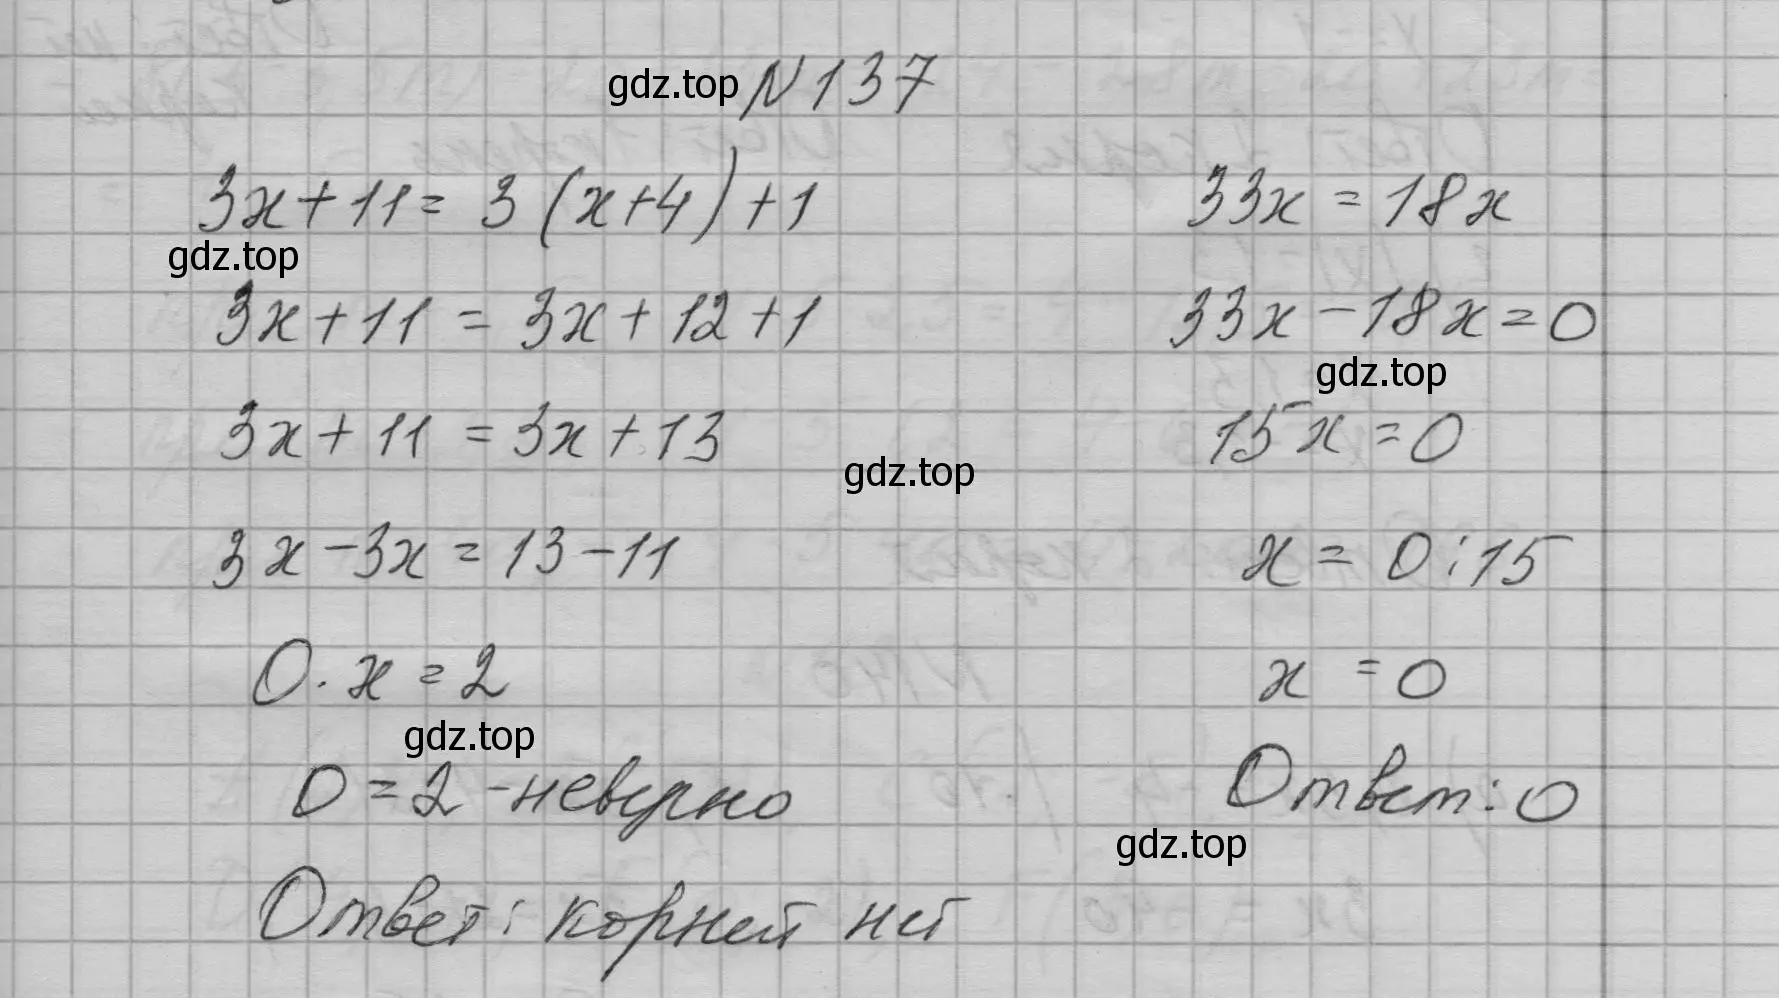 gdz.top
N137
3x+11 = 3(x+4)+1
gdz.top
3x+11 = 3x+12+1
3x+11 = 3x+13
gdz.top
3x-3x = 13-11
0·x = 2
gdz.top
0 = 2 - неверно
Ответ: корней нет
33x = 18x
33x-18x=0
gdz.top
15x = 0
x = 0:15
x = 0
Ответ: 0
gdz.top